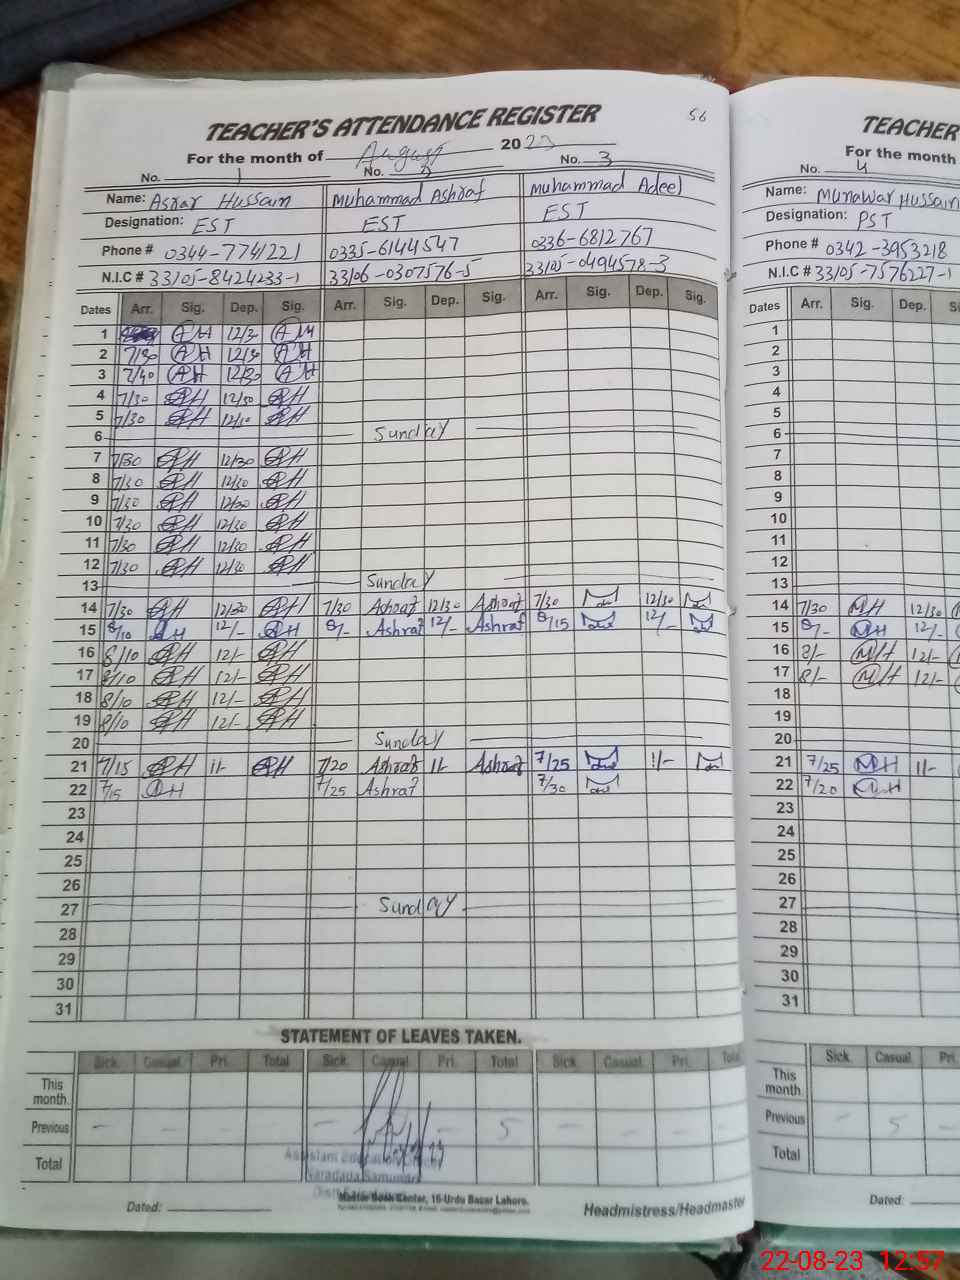 56
TEACHER'S ATTENDANCE REGISTER
For the month of August 2023
No. 1 No. 2 No. 3
Name: Asrar Hussain Muhammad Ashraf Muhammad Adeel
Designation: EST EST EST
Phone # 0344-7741221 0335-6144547 0336-6812767
N.I.C # 33105-8424233-1 33106-0307576-5 33105-0494578-3
Dates Arr. Sig. Dep. Sig. Arr. Sig. Dep. Sig. Arr. Sig. Dep. Sig.
1 AH 12/30 AH
2 7/30 AH 12/30 AH
3 7/40 AH 12/30 AH
4 7/30 AH 12/30 AH
5 7/30 AH 12/30 AH
6 Sunday
7 7/30 AH 12/30 AH
8 7/30 AH 12/30 AH
9 7/30 AH 12/30 AH
10 7/30 AH 12/30 AH
11 7/30 AH 12/30 AH
12 7/30 AH 12/30 AH
13 Sunday
14 7/30 AH 12/30 AH 7/30 Ashraf 12/30 Ashraf 7/30 12/30
15 8/10 AH 12/- AH 8/- Ashraf 12/- Ashraf 8/15 12/-
16 8/10 AH 12/- AH
17 8/10 AH 12/- AH
18 8/10 AH 12/- AH
19 8/10 AH 12/- AH
20 Sunday
21 7/15 AH 1/- AH 7/20 Ashraf 1/- Ashraf 7/25 1/-
22 7/15 AH 7/25 Ashraf 7/30
23
24
25
26
27 Sunday
28
29
30
31
STATEMENT OF LEAVES TAKEN.
Sick. Casual Pri. Total Sick. Casual Pri. Total Sick. Casual Pri. Total
This month.
Previous - - - - - - 5 - - - -
Total
Assistant Education
Master Book Center, 16-Urdu Bazar Lahore.
Dated: Headmistress/Headmaster
TEACHER
For the month
No. 4
Name: Munawar Hussain
Designation: PST
Phone # 0342-3953218
N.I.C # 33105-7576227-1
Dates Arr. Sig. Dep.
1
2
3
4
5
6
7
8
9
10
11
12
13
14 7/30 MH 12/30
15 8/- MH 12/-
16 8/- MH 12/-
17 8/- MH 12/-
18
19
20
21 7/25 MH 1/-
22 7/20 MH
23
24
25
26
27
28
29
30
31
Sick. Casual Pri.
This month.
Previous - 5 -
Total
Dated:
22-08-23 12:57